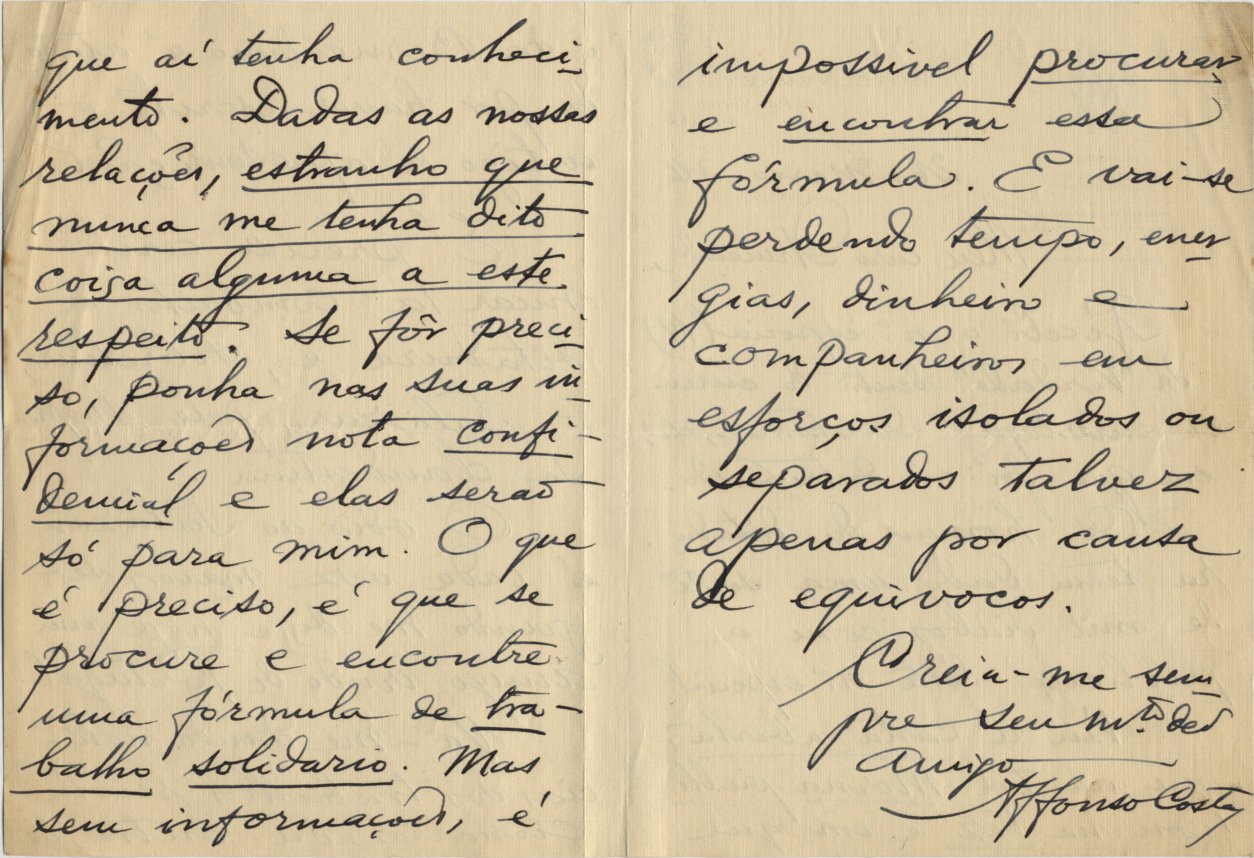 que aí tenha conheci-
mento. Dadas as nossas
relações, estranho que
nunca me tenha dito
coisa alguma a este
respeito. Se fôr preci-
so, ponha nas suas in-
formações nota confi-
dencial e elas serão
só para mim. O que
é preciso, é que se
procure e encontre
uma fórmula de tra-
balho solidario. Mas
sem informações, é
impossivel procurar
e encontrar essa
fórmula. E vai-se
perdendo tempo, ener-
gias, dinheiro e
companheiros em
esforços isolados ou
separados talvez
apenas por causa
de equivocos.
Creia-me sem-
pre seu m.to ded
Amigo
Affonso Costa